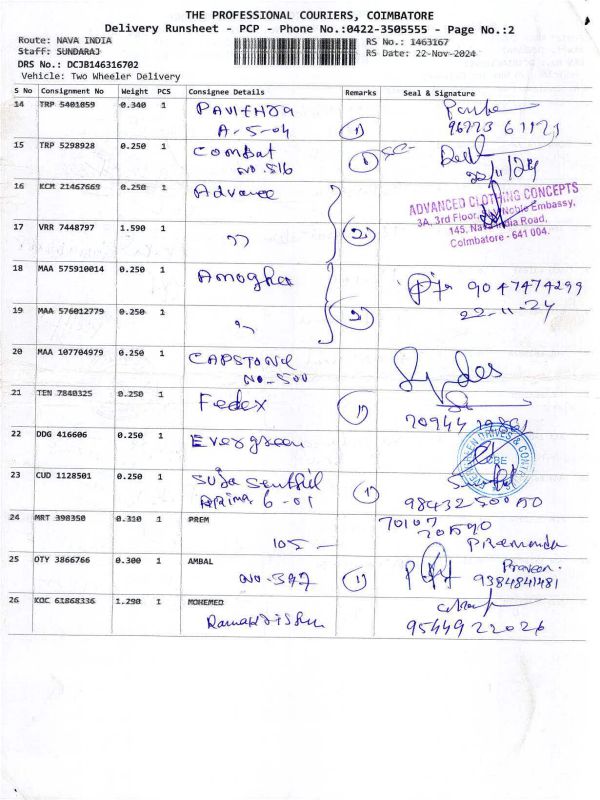 THE PROFESSIONAL COURIERS, COIMBATORE
Delivery Runsheet - PCP - Phone No.:0422-3505555 - Page No.:2
Route: NAVA INDIA
RS No.: 1463167
Staff: SUNDARAJ
RS Date: 22-Nov-2024
DRS No.: DCJB146316702
Vehicle: Two Wheeler Delivery
S No Consignment No Weight PCS Consignee Details Remarks Seal & Signature
14 TRP 5401059 0.340 1
A-5-04 1
15 TRP 5298928 0.250 1 Combat
NO. 516
22/11/24
16 KCM 21467669 0.250 1 Advance
ADVANCED CLOTHING CONCEPTS
3A, 3rd Floor, Noble Embassy,
17 VRR 7448797 1.590 1 " 2
145, Nava India Road,
Coimbatore - 641 004.
18 MAA 575910014 0.250 1 Amogha
9047474299
19 MAA 576012779 0.250 1 " 2
22-11-24
20 MAA 107704979 0.250 1 CAPSTONE
NO-500
21 TEN 7840325 0.250 1 Fedex 1
22 DDG 416606 0.250 1 Evergreen
23 CUD 1128501 0.250 1 Suja Senthil
6-01 1
24 MRT 398350 0.310 1 PREM
105 -
25 OTY 3866766 0.300 1 AMBAL
NO. 397 1
Praveen.
9384841481
26 KOC 61868336 1.290 1 MOHEMED
9544922026